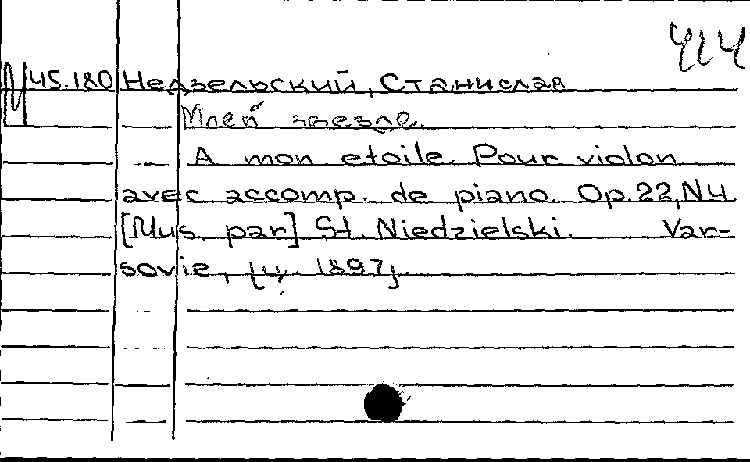 414
45.180 Недзельский, Станислав
Моей звезде.
A mon etoile. Pour violon
avec accomp. de piano. Op.22,N4
[Mus. par] St. Niedzielski. Var-
sovie, [ц. 1897].